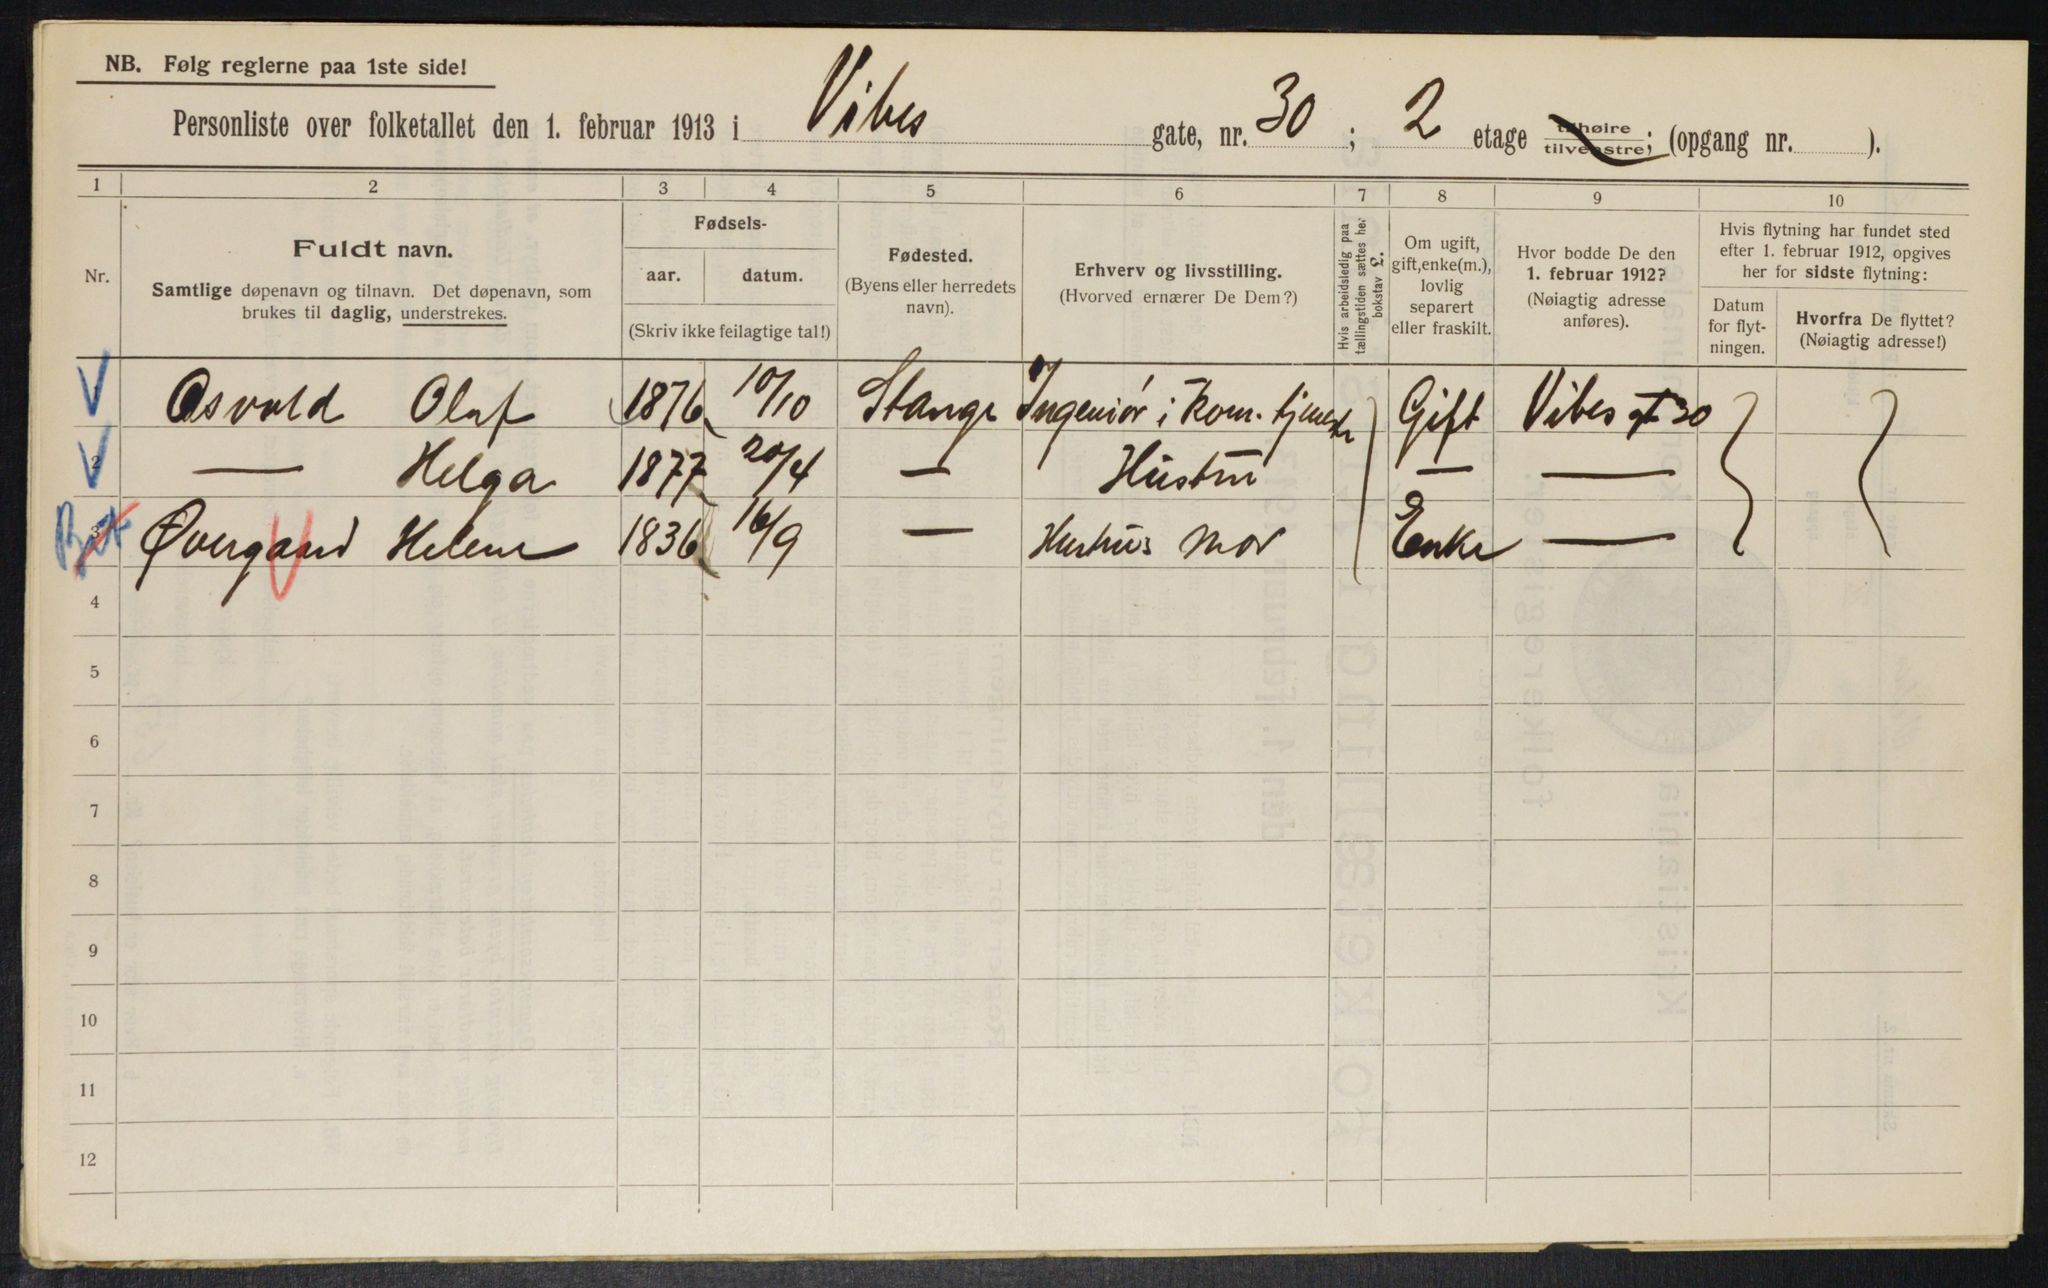 NB. Følg reglerne paa 1ste side!
Personliste over folketallet den 1. februar 1913 i Vibes gate, nr. 30 ; 2 etage tilhøire tilvenstre; (opgang nr. ).
1 2 3 4 5 6 7 8 9 10
Nr.
Fuldt navn.
Samtlige døpenavn og tilnavn. Det døpenavn, som
brukes til daglig, understrekes.
Fødsels-
aar. datum.
(Skriv ikke feilagtige tal!)
Fødested.
(Byens eller herredets
navn).
Erhverv og livsstilling.
(Hvorved ernærer De Dem?)
Hvis arbeidsledig paa
tællingstiden sættes her
bokstav L.
Om ugift,
gift, enke(m.),
lovlig
separert
eller fraskilt.
Hvor bodde De den
1. februar 1912?
(Nøiagtig adresse
anføres).
Hvis flytning har fundet sted
efter 1. februar 1912, opgives
her for sidste flytning:
Datum
for flyt-
ningen.
Hvorfra De flyttet?
(Nøiagtig adresse!)
Osvold Olaf 1876 10/10 Stange Ingeniør i kom. tjeneste Gift Vibes gt 30
2 — Helga 1877 20/4 — Hustru — —
3 Øvergaard Helene 1836 16/9 — Hustrus mor Enke —
4
5
6
7
8
9
10
11
12